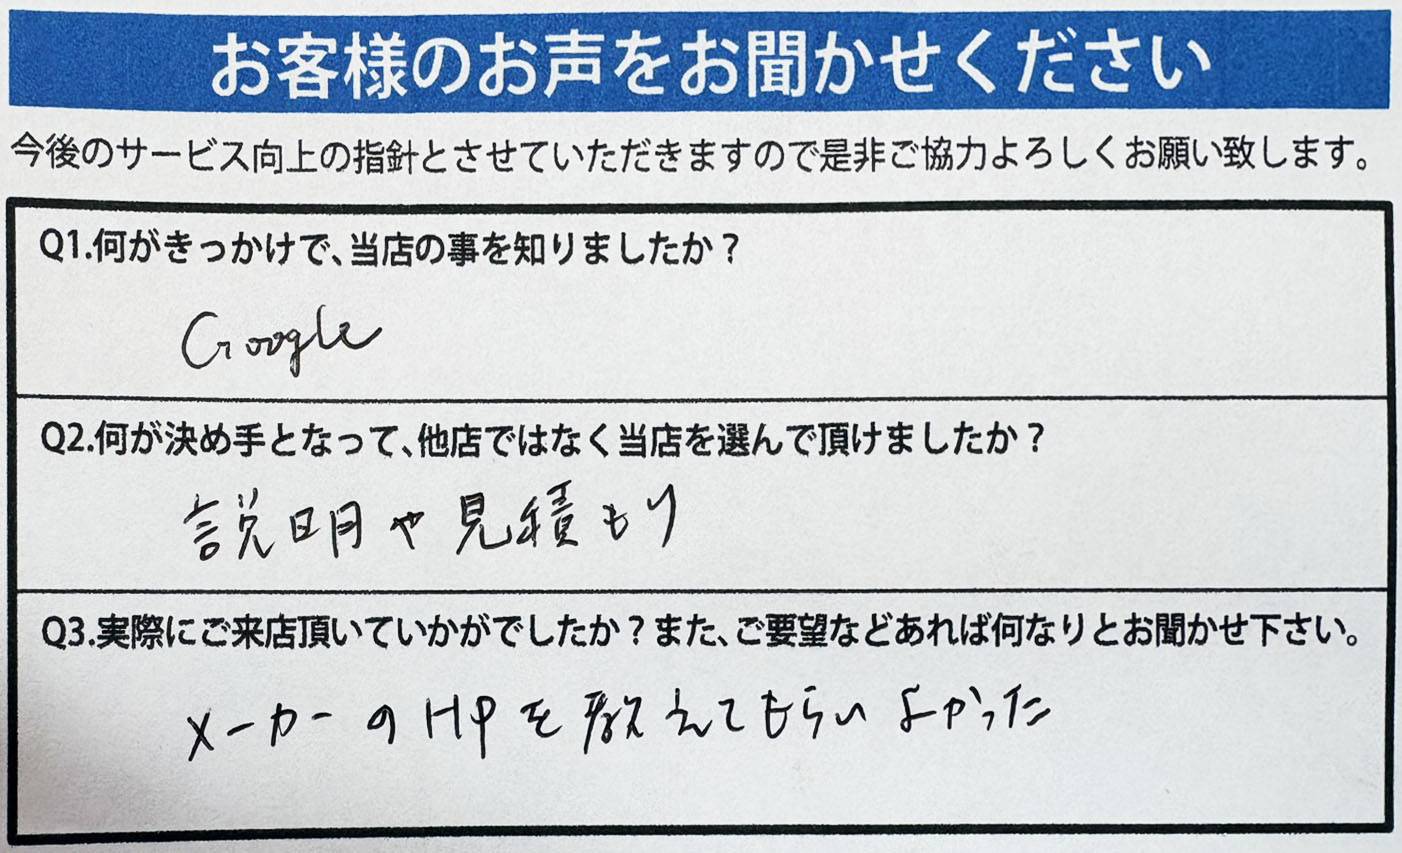 お客様のお声をお聞かせください
今後のサービス向上の指針とさせていただきますので是非ご協力よろしくお願い致します。
Q1.何がきっかけで、当店の事を知りましたか？
Google
Q2.何が決め手となって、他店ではなく当店を選んで頂けましたか？
説明や見積もり
Q3.実際にご来店頂いていかがでしたか？また、ご要望などあれば何なりとお聞かせ下さい。
メーカーのHPを教えてもらいよかった